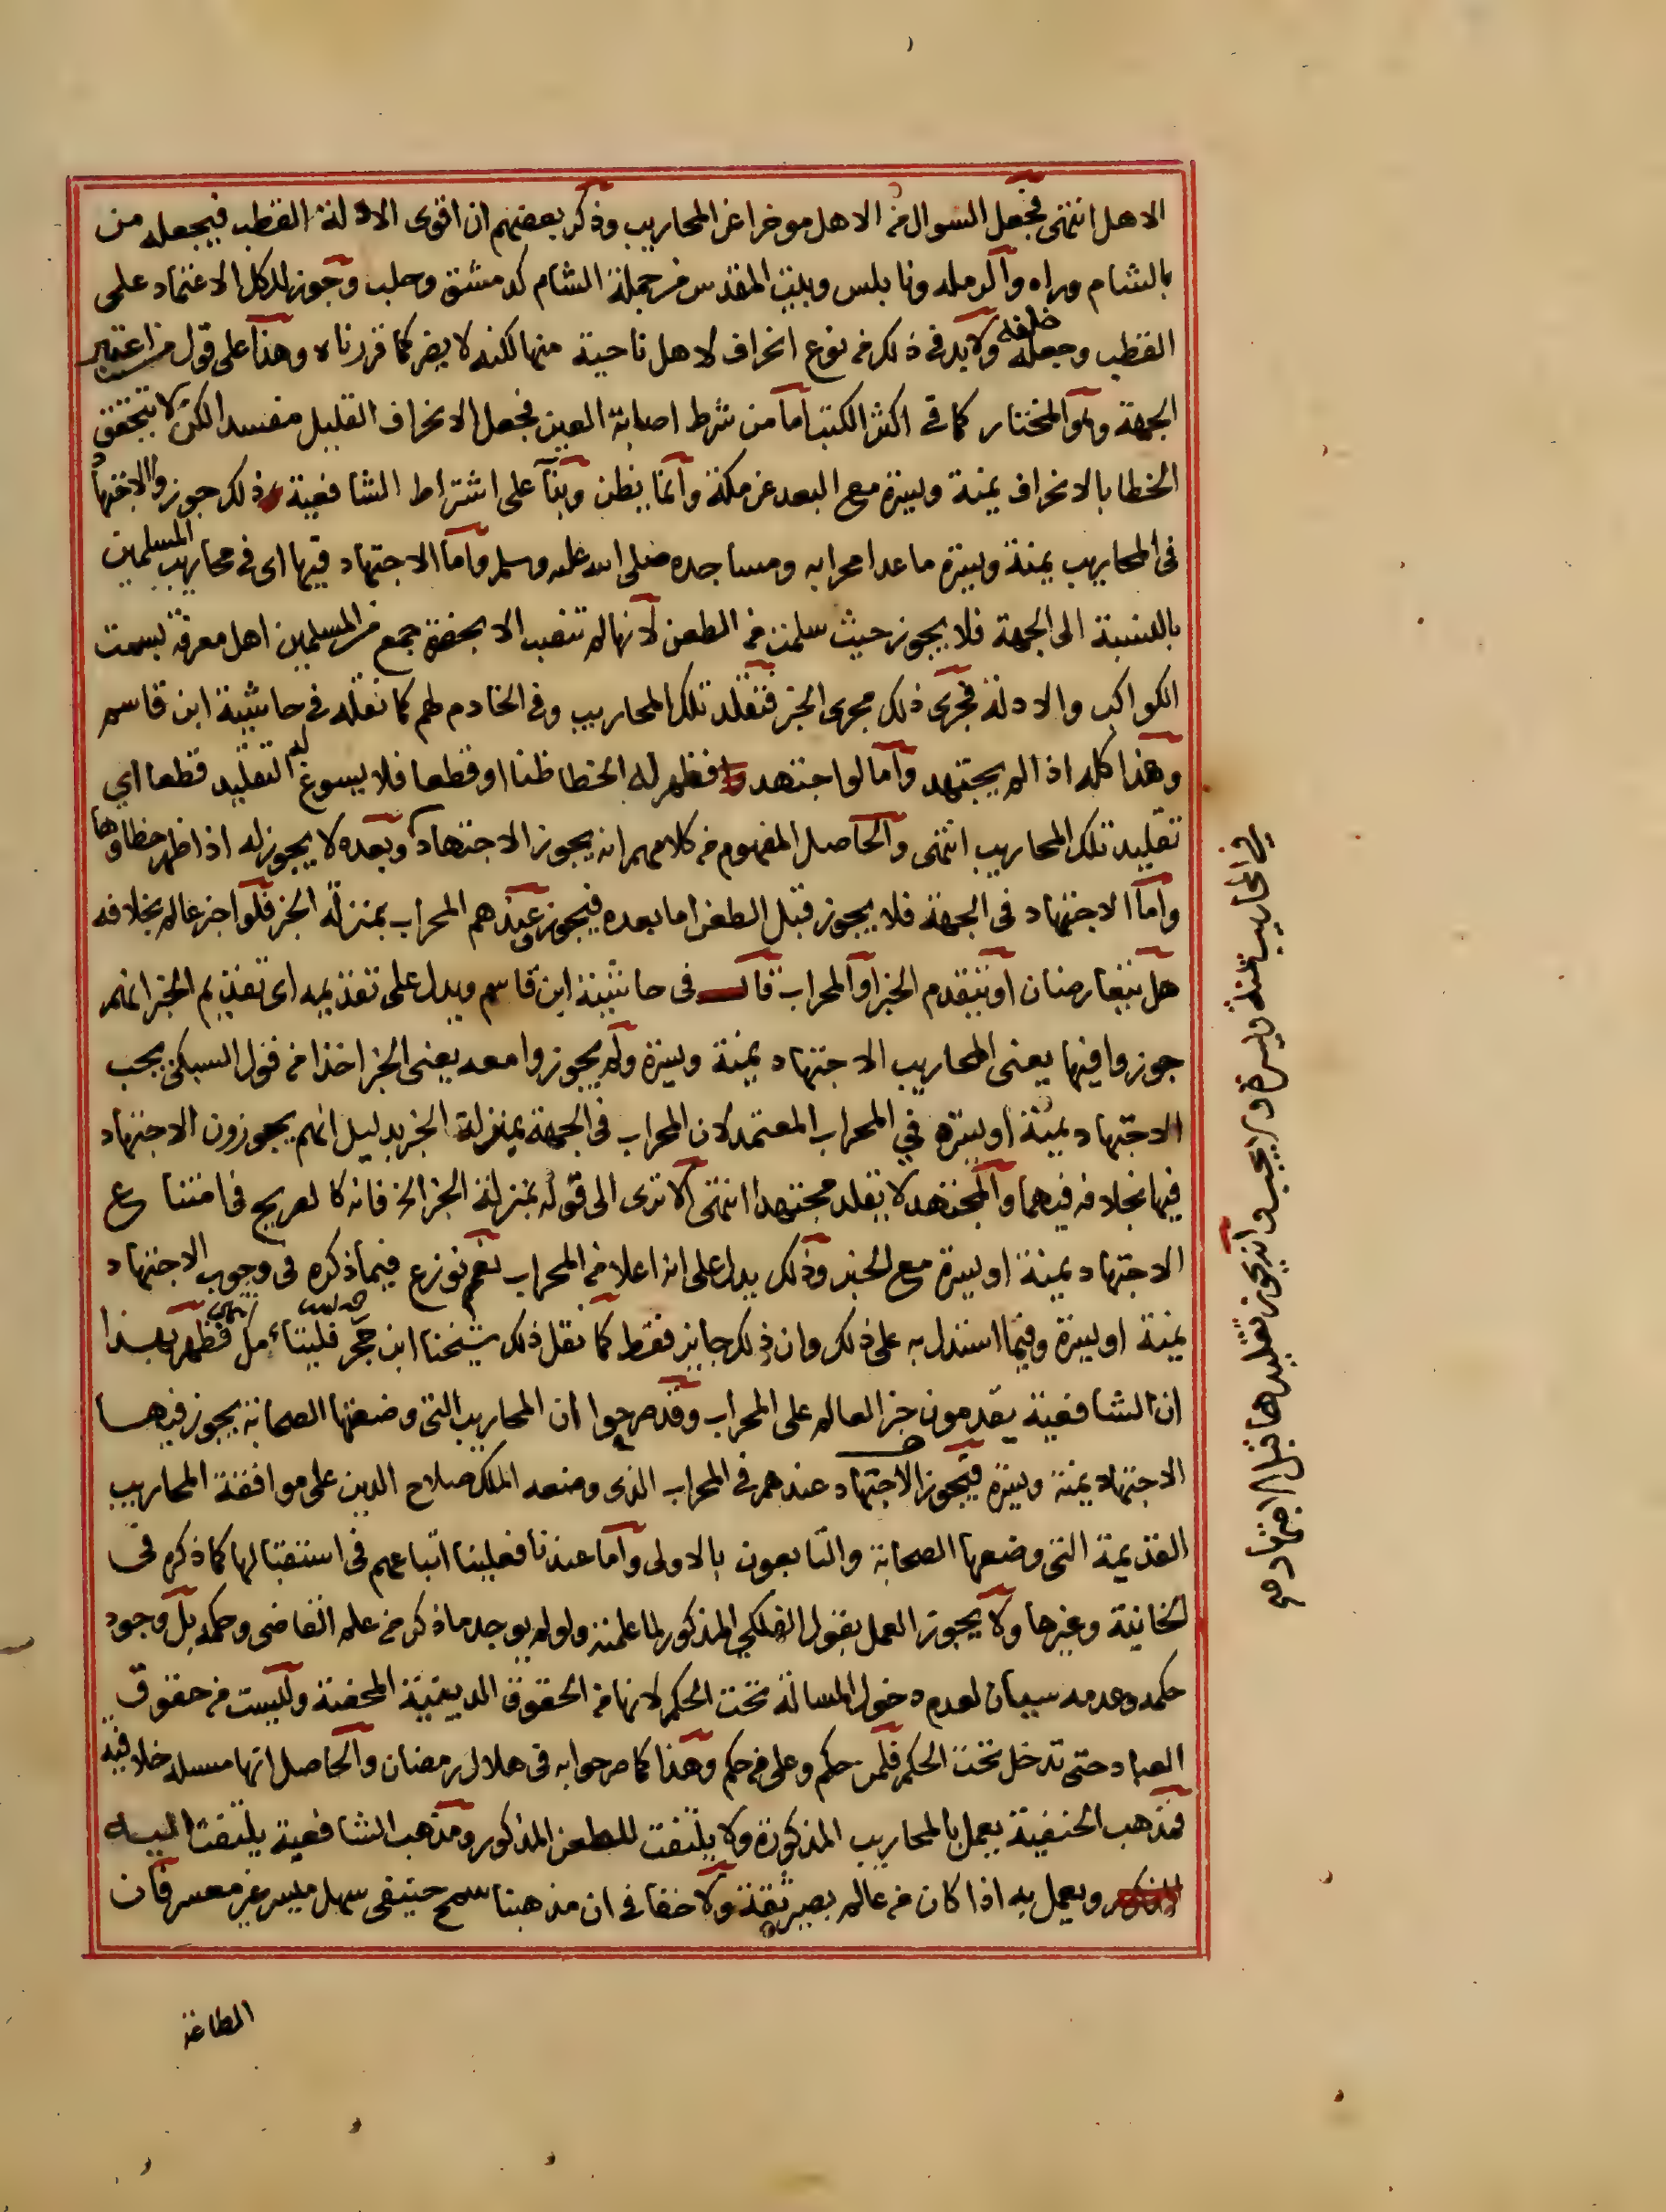 الاهل انتهى فجعل السوال من الاهل موخرا عن المحاريب وذكر بعضهم ان اقوى الادلة القطب فيجعله من
بالشام وراه والرمله ونابلس وبيت المقدس من جملة الشام كدمشق وحلب وجوز للكل الاعتماد على
القطب وجعله خلفه ولابد في ذلك من نوع انحراف لاهل ناحية منها لكنه لا يضر كما قررناه وهذا على قول من اعتبر
الجهة وهو المختار كما في اكثر الكتب اما من شرط اصابة العين فجعل الانحراف القليل مفسدا لكن لا يتحقق
الخطا بالانحراف يمنة ويسرة مع البعد عن مكة وانما يظن وبنآ على اشتراط الشافعية ذلك جوزوا الاجتهاد
في المحاريب يمنة ويسرة ما عدا محرابه ومساجده صلى الله عليه وسلم واما الاجتهاد فيها اى في محاريب المسلمين
بالنسبة الى الجهة فلا يجوز حيث سلمت من الطعن لانها لم تنصب الا بحضرة جمع من المسلمين اهل معرفة بسمت
الكواكب والادلة فجرى ذلك مجرى الخبر فتقلد تلك المحاريب وفي الخادم لهم كما نقله في حاشية ابن قاسم
وهذا كله اذا لم يجتهد واما لو اجتهد فظهر له الخطا ظنا او قطعا فلا يسوغ له التقليد قطعا اي
تقليد تلك المحاريب انتهى والحاصل المفهوم من كلامهم انه يجوز الاجتهاد وبعده لا يجوز له اذا ظهر خطاوها
واما الاجتهاد في الجهة فلا يجوز قبل الطعن اما بعده فيجوز وعندهم المحراب بمنزلة الخبر فلو اخبر عالم بخلافه
هل يتعارضان او يتقدم الخبر او المحراب قال في حاشية ابن قاسم ويدل على تقديمه اى تقديم الخبر انهم
جوزوا فيها يعنى المحاريب الاجتهاد يمنة ويسرة ولم يجوزوا معه يعنى الخبر اخذا من قول السبكى يجب
الاجتهاد يمنة او يسرة في المحراب المعتمد لان المحراب في الجهة بمنزلة الخبر بدليل انهم يجوزون الاجتهاد
فيها بخلافه فيهما والمجتهد لا يقلد مجتهدا انتهى الا ترى الى قوله بمنزلة الخبر الخ فانه كالصريح في امتناع
الاجتهاد يمنة او يسرة مع الخبر وذلك يدل على انه اعلا من المحراب نعم نوزع فيما ذكره في وجوب الاجتهاد
يمنة او يسرة وفيما استدل به على ذلك وان ذلك جايز فقط كما نقل ذلك شيخنا ابن حجر فليتامل انتهى فظهر بهذا
ان الشافعية يقدمون خبر العالم على المحراب وقد صرحوا ان المحاريب التى وضعتها الصحابة يجوز فيها
الاجتهاد يمنة ويسرة فيجوز الاجتهاد عندهم في المحراب الذى وضعه الملك صلاح الدين على موافقة المحاريب
القديمة التى وضعها الصحابة والتابعون بالاولى واما عندنا فعلينا اتباعهم في استقبالها كما ذكره في
الخانية وغيرها ولا يجوز العمل بقول الفلكي المذكور لما علمته ولو لم يوجد ما ذكر من علم القاضى وحكمه بل وجود
حكمه وعدمه سيان لعدم دخول المسالة تحت الحكم لانها من الحقوق الدينية المحضة وليست من حقوق
العباد حتى تدخل تحت الحكم فلمن حكم وعلى من حكم وهذا كما صرحوا به في هلال رمضان والحاصل انها مسلة خلافية
فمذهب الحنفية يعمل بالمحاريب المذكورة ولا يلتفت للطعن المذكور ومذهب الشافعية يلتفت اليه
ويعمل به اذا كان من عالم بصير ثقة ولا خفا في ان مذهبنا سمح حنيفى سهل ميسر غير معسر فان
الطاعة
في المحاريب يمنة ويسرة ولا يجب وانه يجوز تقليدها قبل الاجتهاد